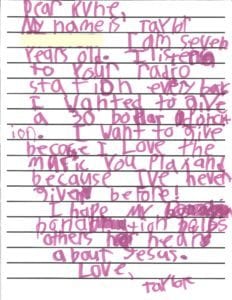 Dear KVNE,
My name is Taylor
I am seven
years old. I listen
to your radio
station every day
I wanted to give
a 30 dollar donat
ion. I want to give
because I Love the
music you play and
because I've never
given before!
I hope my
donation helps
others hear
about Jesus.
Love,
Taylor